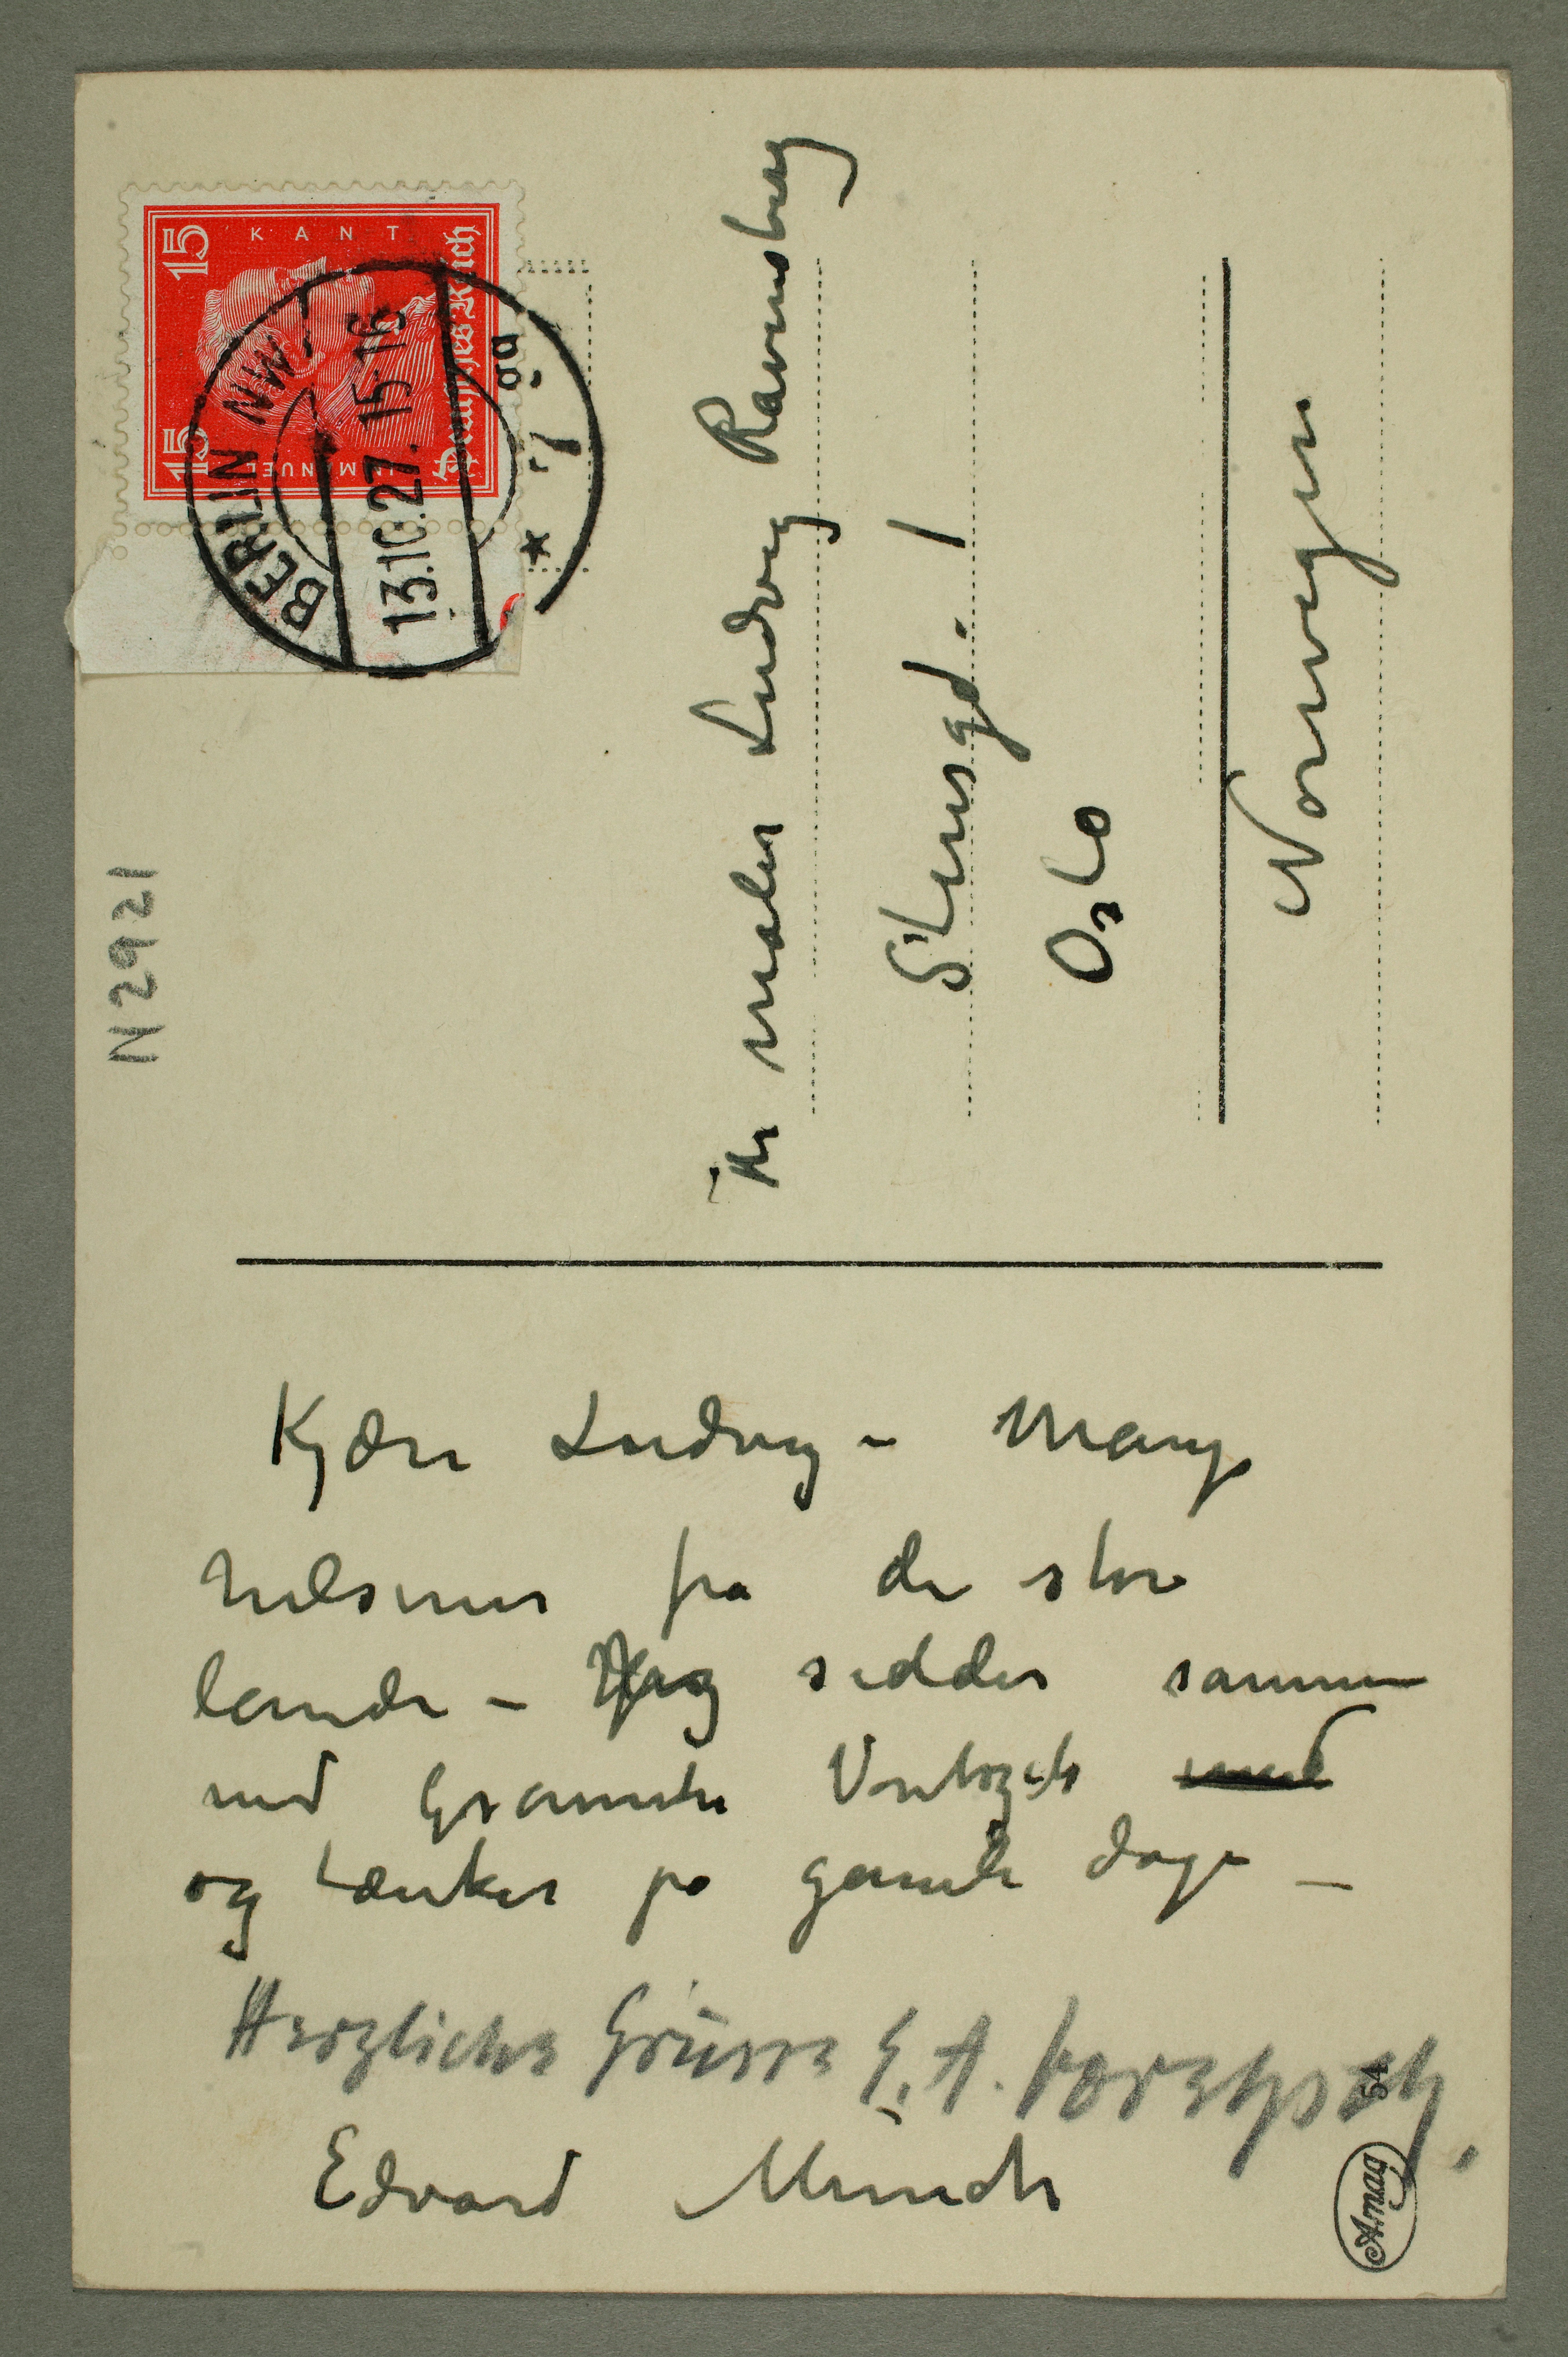 N 2921
KANT
IMMANUEL
15
15
Deutsches Reich
BERLIN NW
13.10.27. 15-16
* 7 gg
Hr maler Ludvig Ravensberg
Stensgd. 1
Oslo
Norwegen
Kjære Ludvig – Mange
hilsener fra de store
lande – Jeg sidder sammen
med Gsamte
og tænker på gamle dage –
Herzliche Grüsse E. A.
Edvard Munch
54
Amag